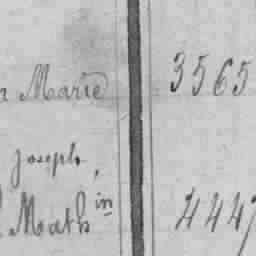 Marie 3565
Joseph,
Math in 4447